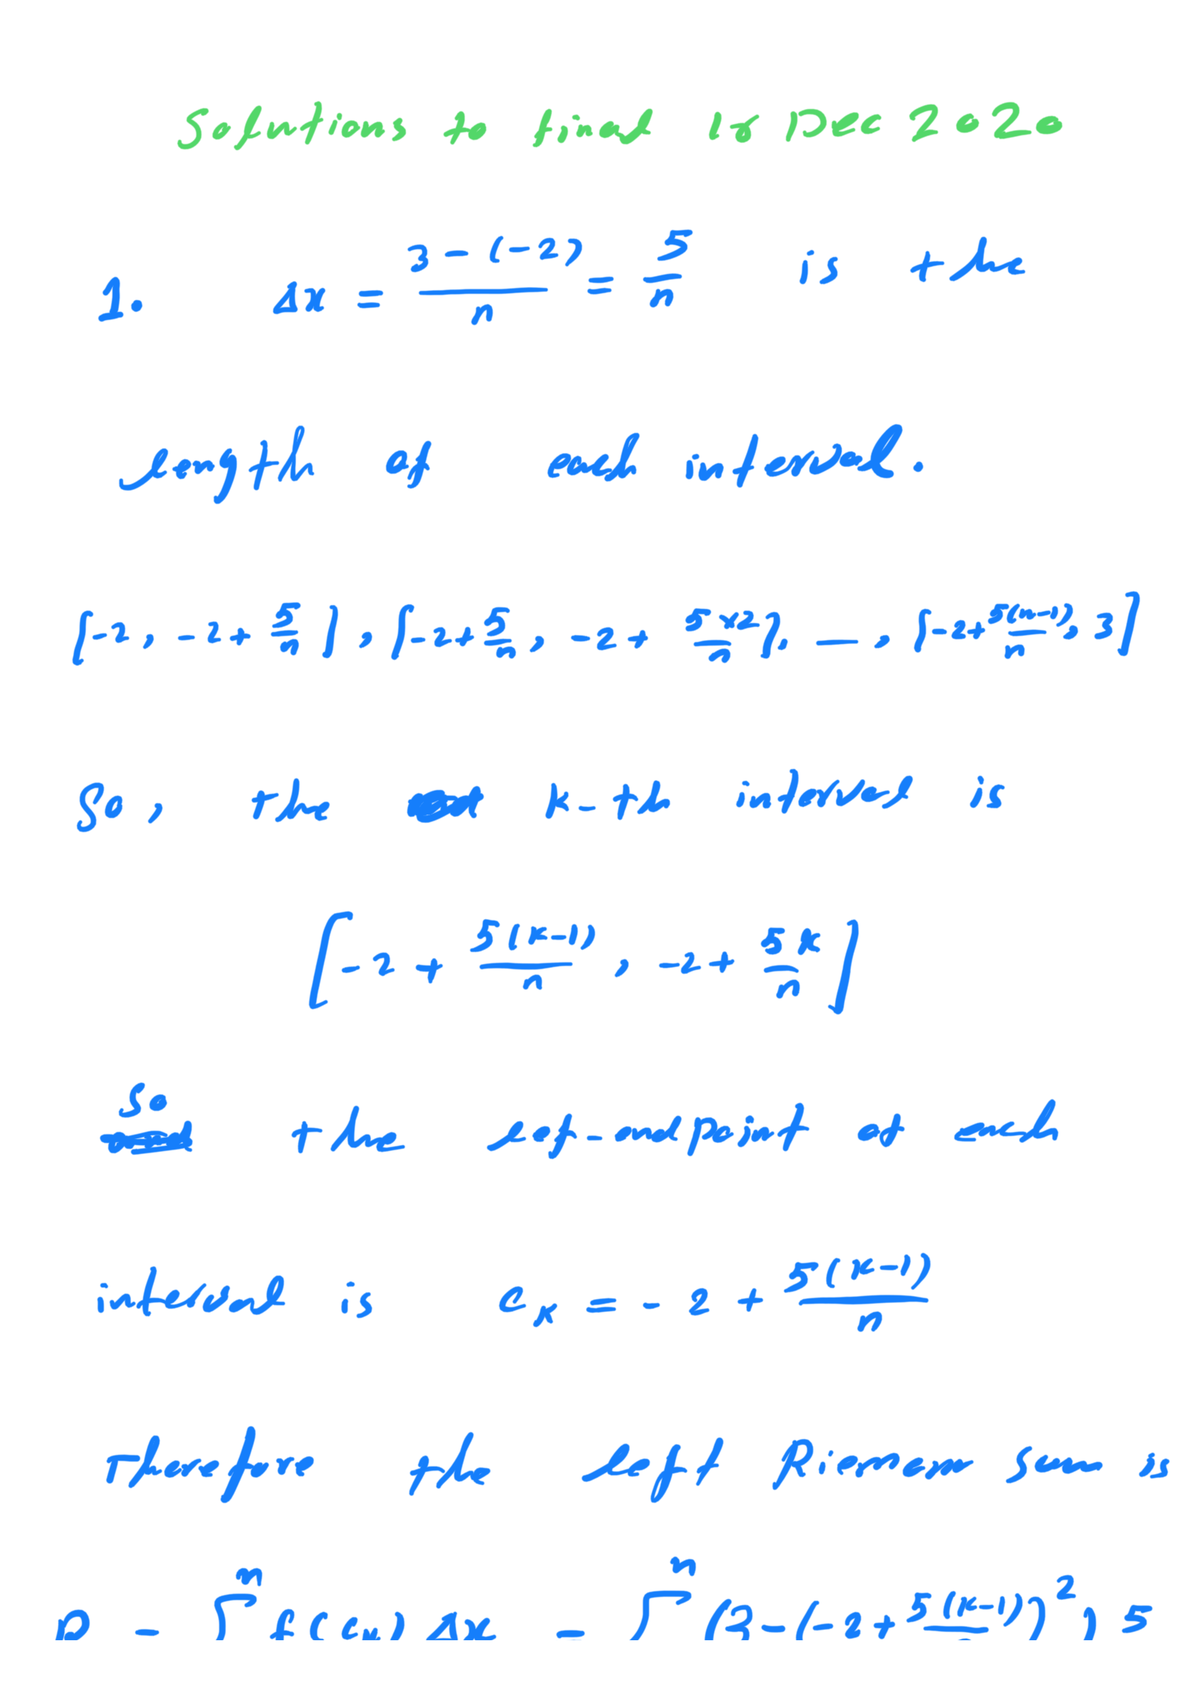 Solutions to final 18 Dec 2020
1. Δx = (3-(-2))/n = 5/n is the
length of each interval.
[-2, -2+5/n], [-2+5/n, -2+(5×2)/n], —, [-2+5(n-1)/n, 3]
So, the k-th interval is
[-2+5(k-1)/n, -2+5k/n]
So the lef-endpoint of each
interval is c_k = -2+5(k-1)/n
Therefore the left Riemann sum is